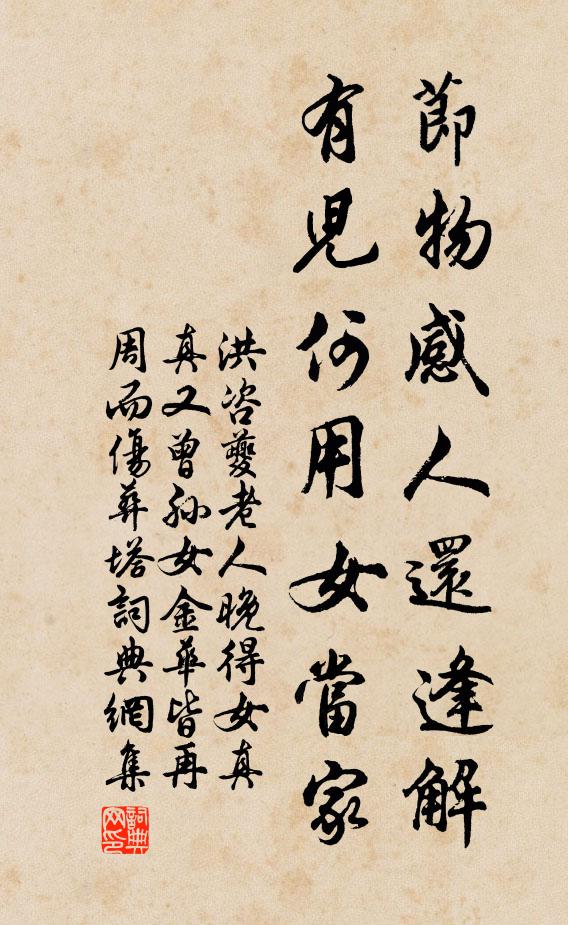 節物感人還逢解
有児何用女當家
洪咨夔老人晚得女真
真又曾孫女金華皆再
周而傷葬塔詞典網集
詞典網印